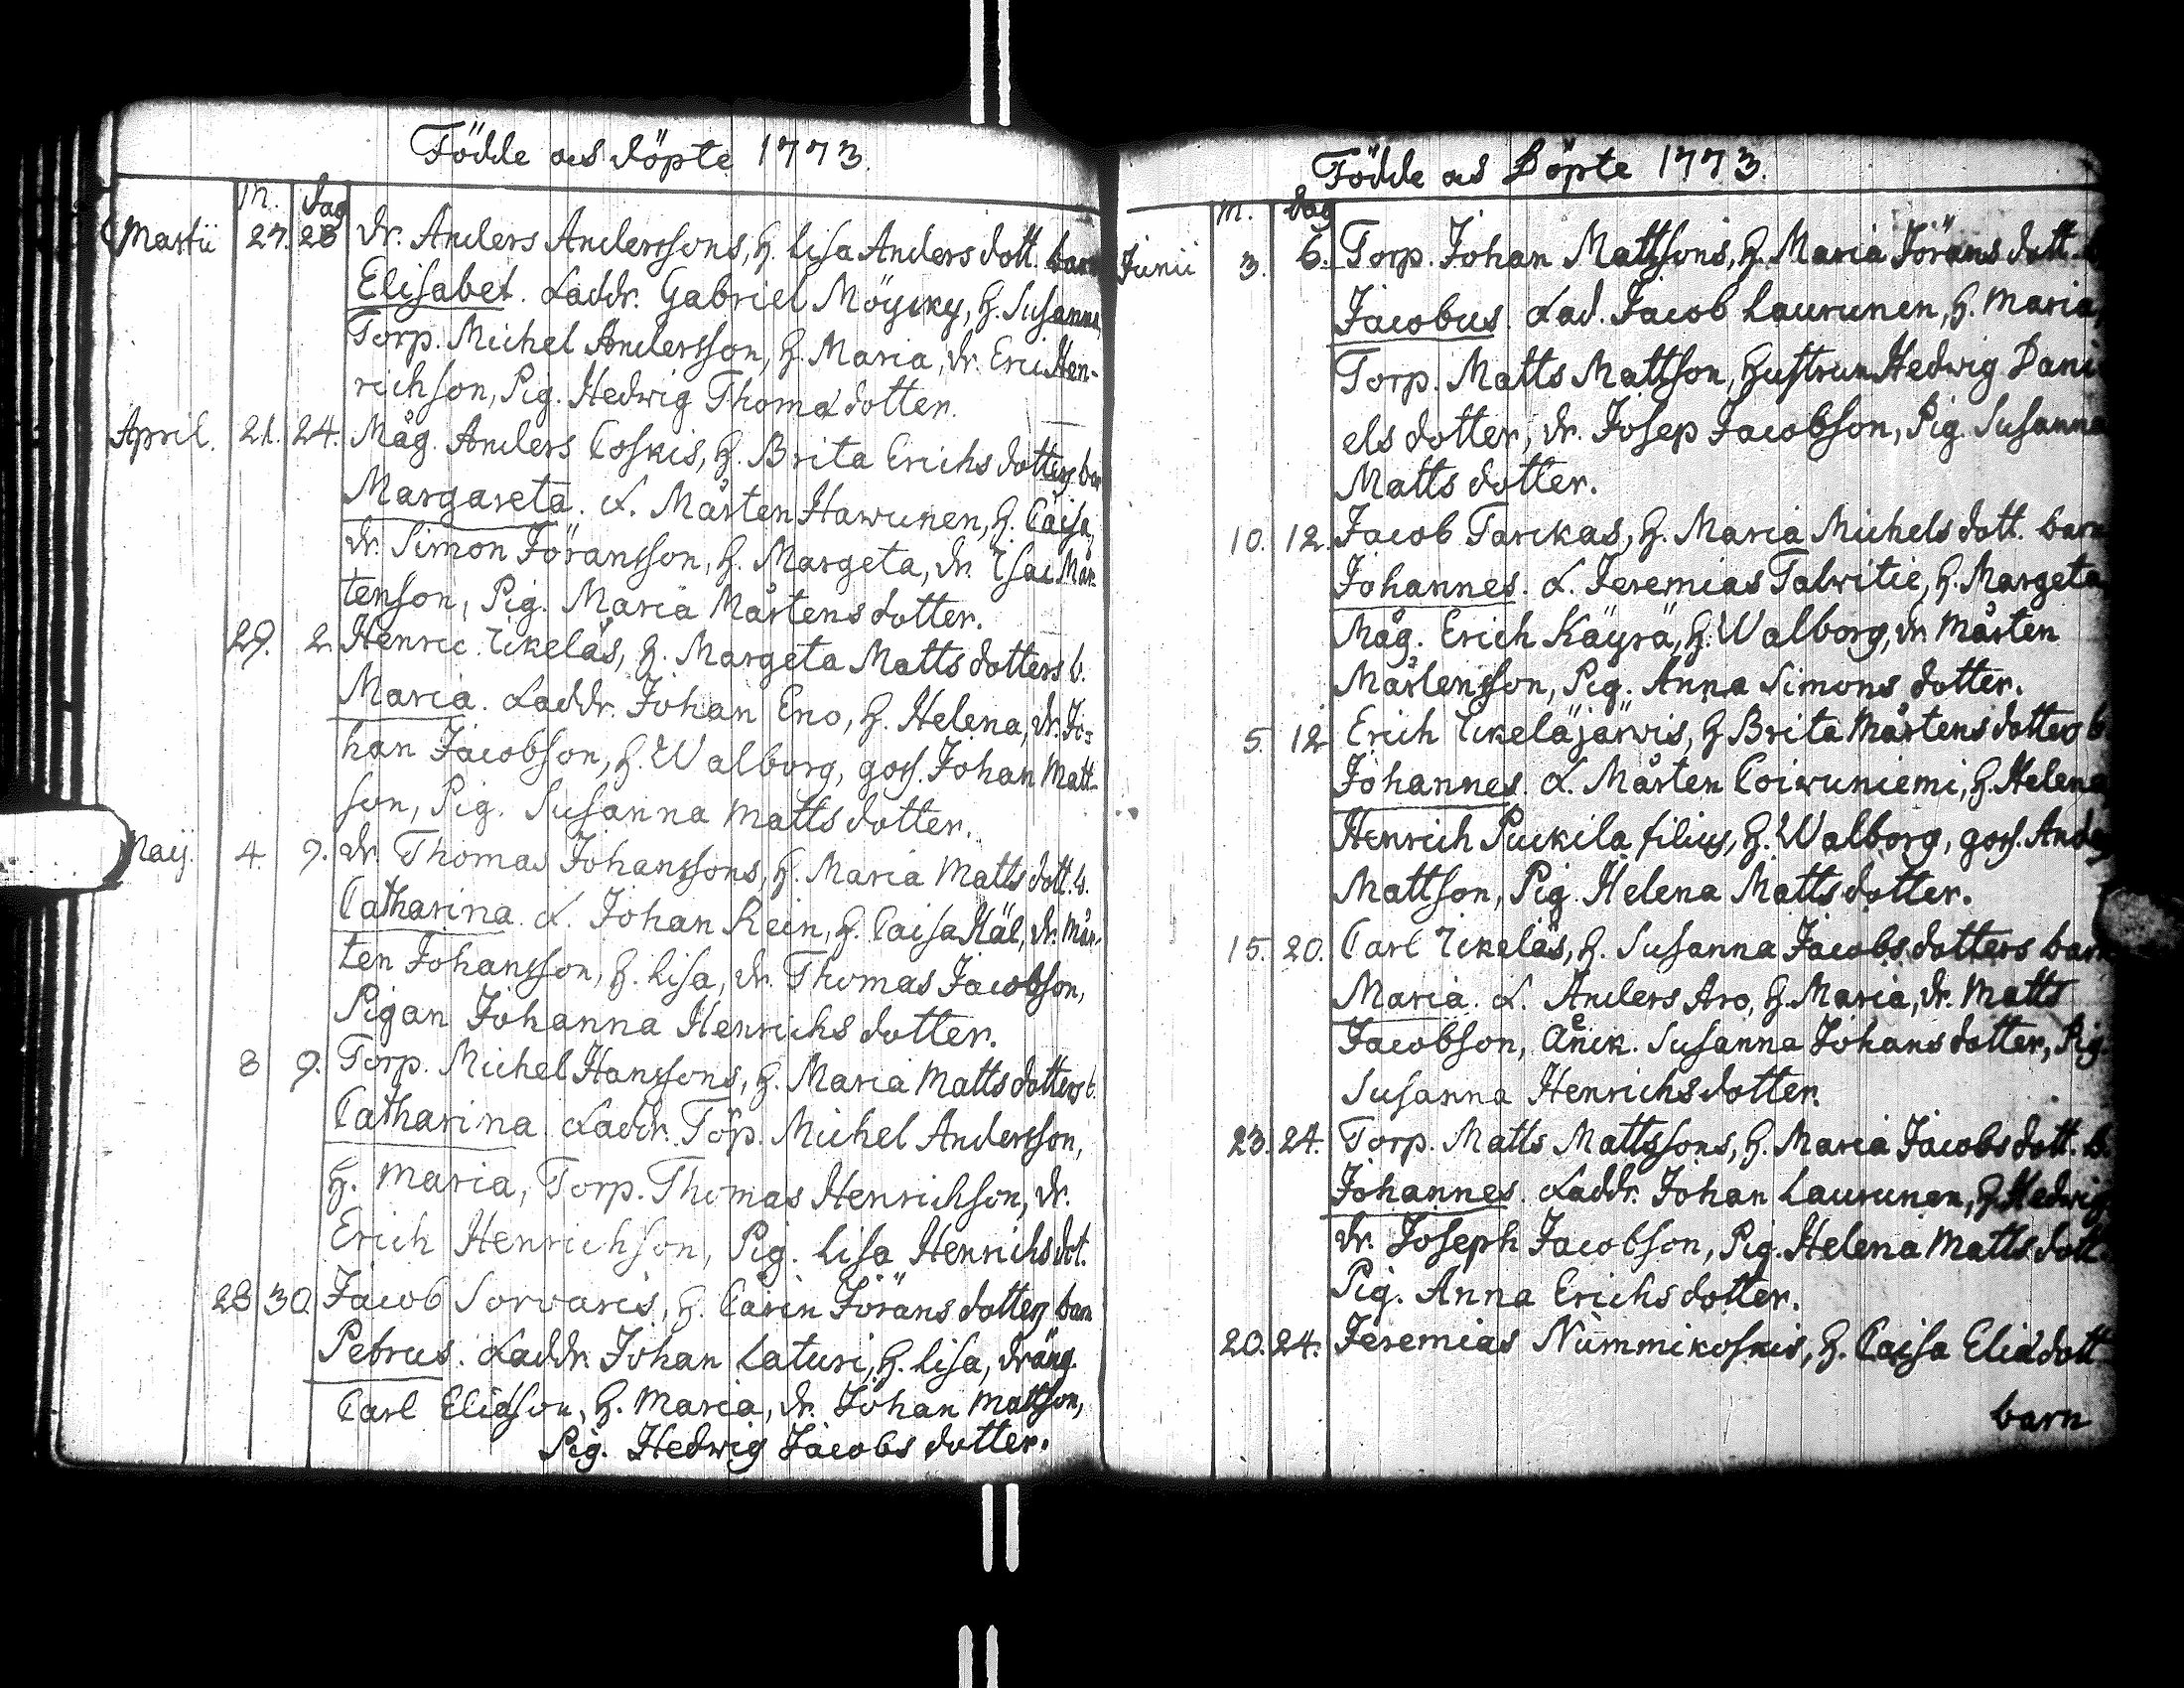 Födde och döpte 1773.
m. dag
Martii 27. 28 dr. Anders Anderssons, h. Lisa Anders dott. barn
Elisabet. Laddr. Gabriel Möyky, h. Susanna,
Torp. Michel Andersson, h. Maria, dr. Eric Hen-
richson, Pig. Hedwig Thomædotter.
April. 21. 24. Måg. Anders Coskis, h. Brita Erichs dotters bar
Margareta. L. Mårten Hawunen, h. Caisa,
dr. Simon Jöransson, h. Margeta, dr. Isac Mår-
tenson, Pig. Maria Mårtens dotter.
29. 2. Henric Ikeläs, h. Margeta Matts dotters b.
Maria. Laddr. Johan Eno, h. Helena, dr. Jo-
han Jacobson, h. Walborg, goss. Johan Matt-
son, Pig. Susanna Matts dotter.
Maij. 4. 9. dr. Thomas Johanssons, h. Maria Matts dott. b.
Catharina. L. Johan Rein, h. Caisa Häl, dr. Mår-
ten Johansson, h. Lisa, dr. Thomas Jacobson,
Pigan Johanna Henrichs dotter.
8 9. Torp. Michel Hanssons, h. Maria Matts dotters b.
Catharina Laddr. Torp. Michel Andersson,
h. Maria, Torp. Thomas Henrichson, dr.
Erich Henrichson, Pig. Lisa Henrichs dot.
28 30. Jacob Sorvaris, h. Carin Jörans dotters barn
Petrus. Laddr. Johan Laturi, h. Lisa, dräng.
Carl Eliæson, h. Maria, dr. Johan Mattson,
Pig. Hedwig Jacobs dotter.
Födde och Döpte 1773.
m. dag
Junii 3. 6. Torp. Johan Mattsons, h. Maria Jörans dott. b
Jacobus. Lad. Jacob Laurunen, h. Maria,
Torp. Matts Mattson, hustrun Hedwig Dani
els dotter, dr. Josep Jacobson, Pig. Susanna
Matts dotter.
10. 12. Jacob Tarckas, h. Maria Michels dott. barn
Johannes. L. Jeremias Talwitie, h. Margeta
Måg. Erich Käyrä, h. Walborg, dr. Mårten
Mårtensson, Pig. Anna Simons dotter.
5. 12 Erich Ikeläjärvis, h Brita Mårtens dotters b
Johannes. L. Mårten Coiwuniemi, h. Helena
Henrich Puckila filius, h. Walborg, goss. Anders
Mattson, Pig Helena Matts dotter.
15. 20. Carl Ikeläs, h. Susanna Jacobs dotters barn
Maria. L. Anders Aro, h. Maria, dr. Matts
Jacobson, Änck. Susanna Johans dotter, Pig.
Susanna Henrichsdotter.
23. 24. Torp. Matts Mattssons, h. Maria Jacobs dott. b.
Johannes. Laddr. Johan Laurunen, h. Hedwig
dr. Joseph Jacobson, Pig. Helena Matts dott.
Pig. Anna Erichs dotter.
20. 24. Jeremias Nummikoskis, h. Caisa Eliædott
barn